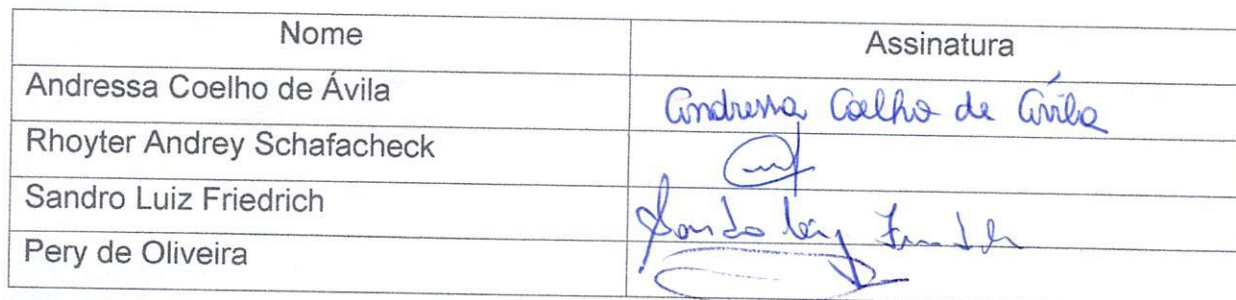 Nome Assinatura
Andressa Coelho de Ávila Andressa Coelho de Ávila
Rhoyter Andrey Schafacheck
Sandro Luiz Friedrich Sandro Luiz Friedrich
Pery de Oliveira